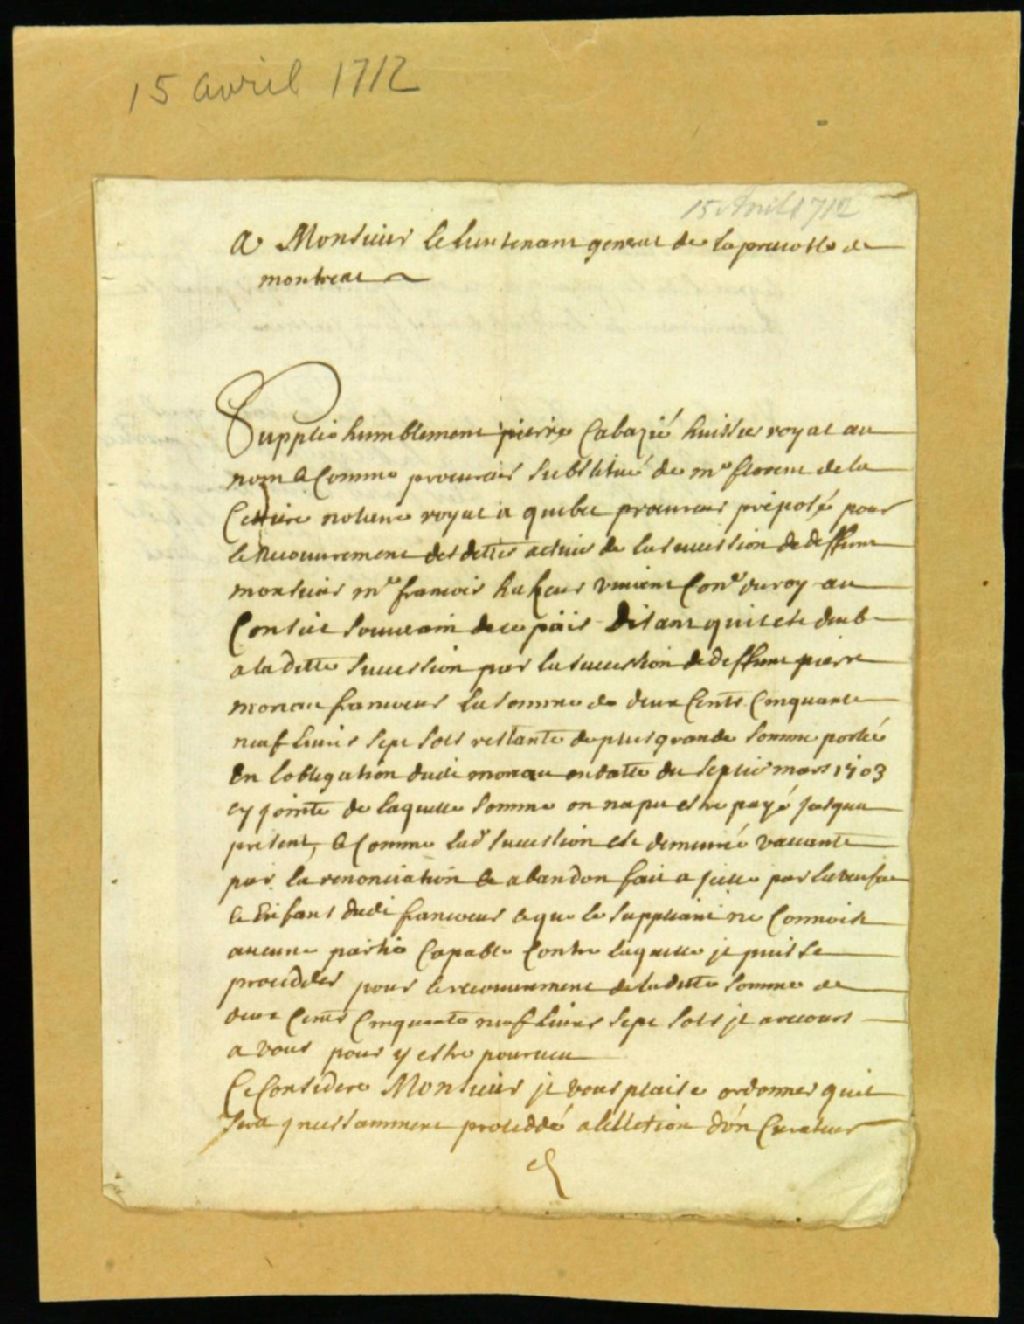 15 avril 1712
15 Avril 1712
A Monsieur le lieutenant general de la prevosté de
montreal
Supplie humblement pierre Cabazié huissier royal au
nom & Comme procureur substitué de me florent de la
Cetiere notaire royal a quebec procureur préposé pour
le recouvrement des dettes actives de la succession de deffunt
monsieur me francois hazeur vivant Coner du roy au
Conseil souverain de ce païs Disant quil est deub
a la ditte succession par la succession de deffunt pierre
moreau francoeur la somme de deux Cents Cinquante
neuf livres sept sols restante de plus grande somme portée
En lobligation dudi moreau en datte du septie mars 1703
cy jointe de laquelle somme on na pu estre payé jusqua
present, & Comme lad succession est demeuré vaccante
par la renonciation & abandon fait a jcelle par la veufve
& Enfans dudi francoeur & que le suppliant ne Connoist
aucune partie Capable Contre laquelle je puisse
proceder pour le recouvrement de la ditte somme de
deux Cents Cinquante neuf livres sept sols je a recours
a vous pour y estre pourveu
Ce Consideré Monsieur jl vous plaise ordonner quil
sera jncessamment proceddé a lellection dún Curateur